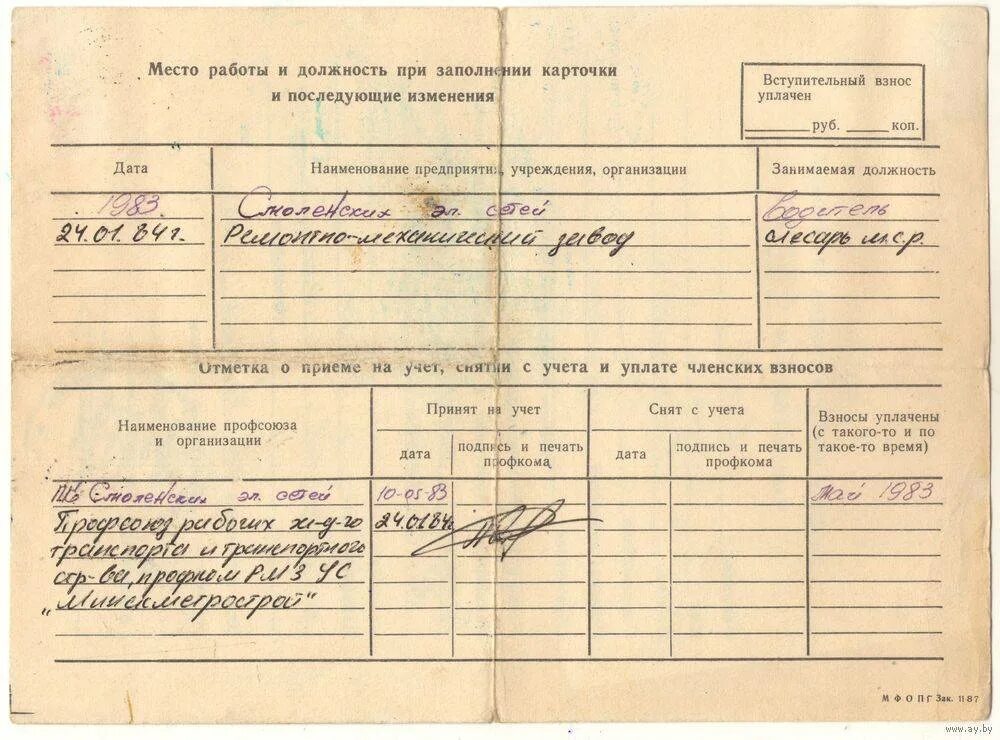 Место работы и должность при заполнении карточки
и последующие изменения
Вступительный взнос
уплачен
руб. коп.
Дата Наименование предприятия, учреждения, организации Занимаемая должность
1983 Смоленских эл. сетей водитель
24.01.84г. Ремонтно-механический завод слесарь м.с.р.
Отметка о приеме на учет, снятии с учета и уплате членских взносов
Наименование профсоюза
и организации
Принят на учет
Снят с учета
Взносы уплачены
(с такого-то и по
такое-то время)
дата
подпись и печать
профкома
дата
подпись и печать
профкома
Смоленских эл. сетей 10-05-83 май 1983
Профсоюз рабочих ж-д-го 24.01.84г
транспорта и транспортного
стр-ва, профком РМЗ УС
„Минскметрострой"
МФОПГ Зак. 1187
www.ay.by